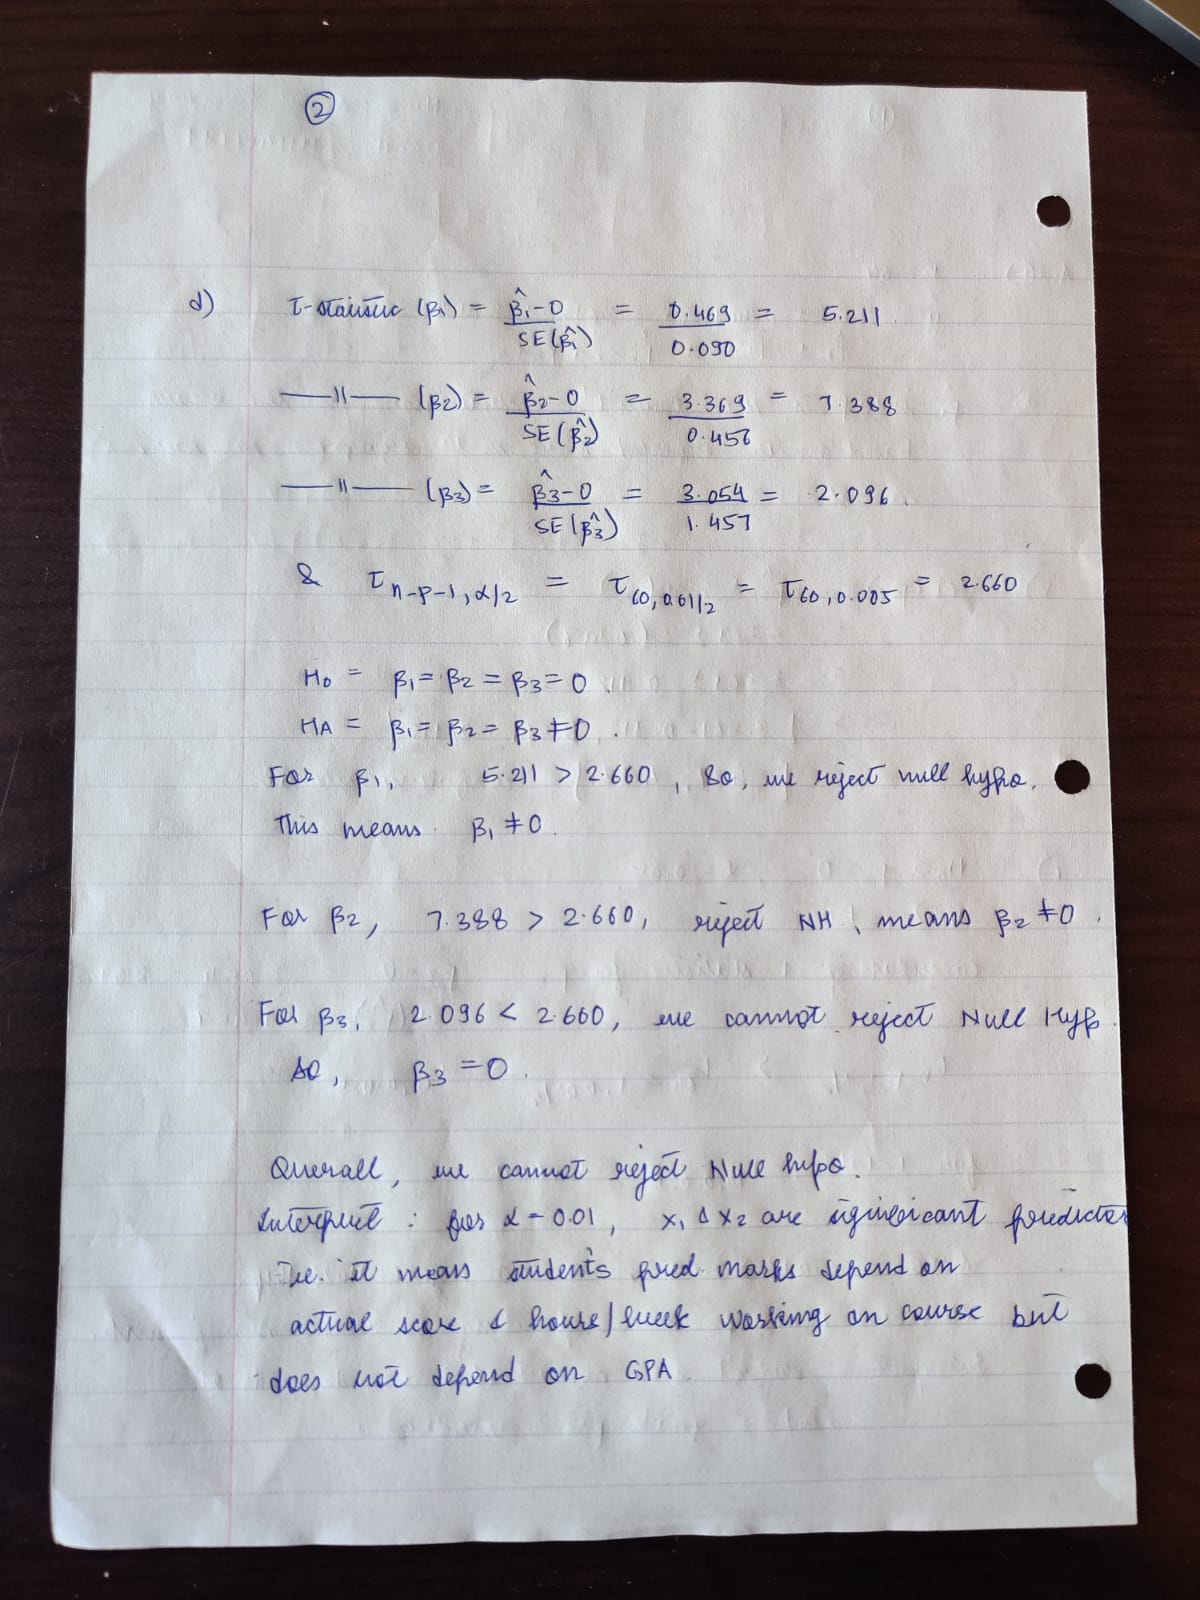 2
d) T-statistic (β1) = β̂1-0 / SE(β̂1) = 0.469 / 0.090 = 5.211
—〃— (β2) = β̂2-0 / SE(β̂2) = 3.369 / 0.456 = 7.388
—〃— (β3) = β̂3-0 / SE(β̂3) = 3.054 / 1.457 = 2.096.
& T n-p-1, α/2 = T 60, 0.01/2 = T 60, 0.005 = 2.660
H0 = β1 = β2 = β3 = 0.
HA = β1 = β2 = β3 ≠ 0.
For β1, 5.211 > 2.660, so, we reject null hypo.
This means β1 ≠ 0.
For β2, 7.388 > 2.660, reject NH, means β2 ≠ 0.
For β3, 2.096 < 2.660, we cannot reject Null Hyp.
so, β3 = 0.
Overall, we cannot reject Null hypo.
Interpret : for α = 0.01, x1 & x2 are significant predictor
i.e. it means student's pred. marks depend on
actual score & hours/week working on course but
does not depend on GPA.